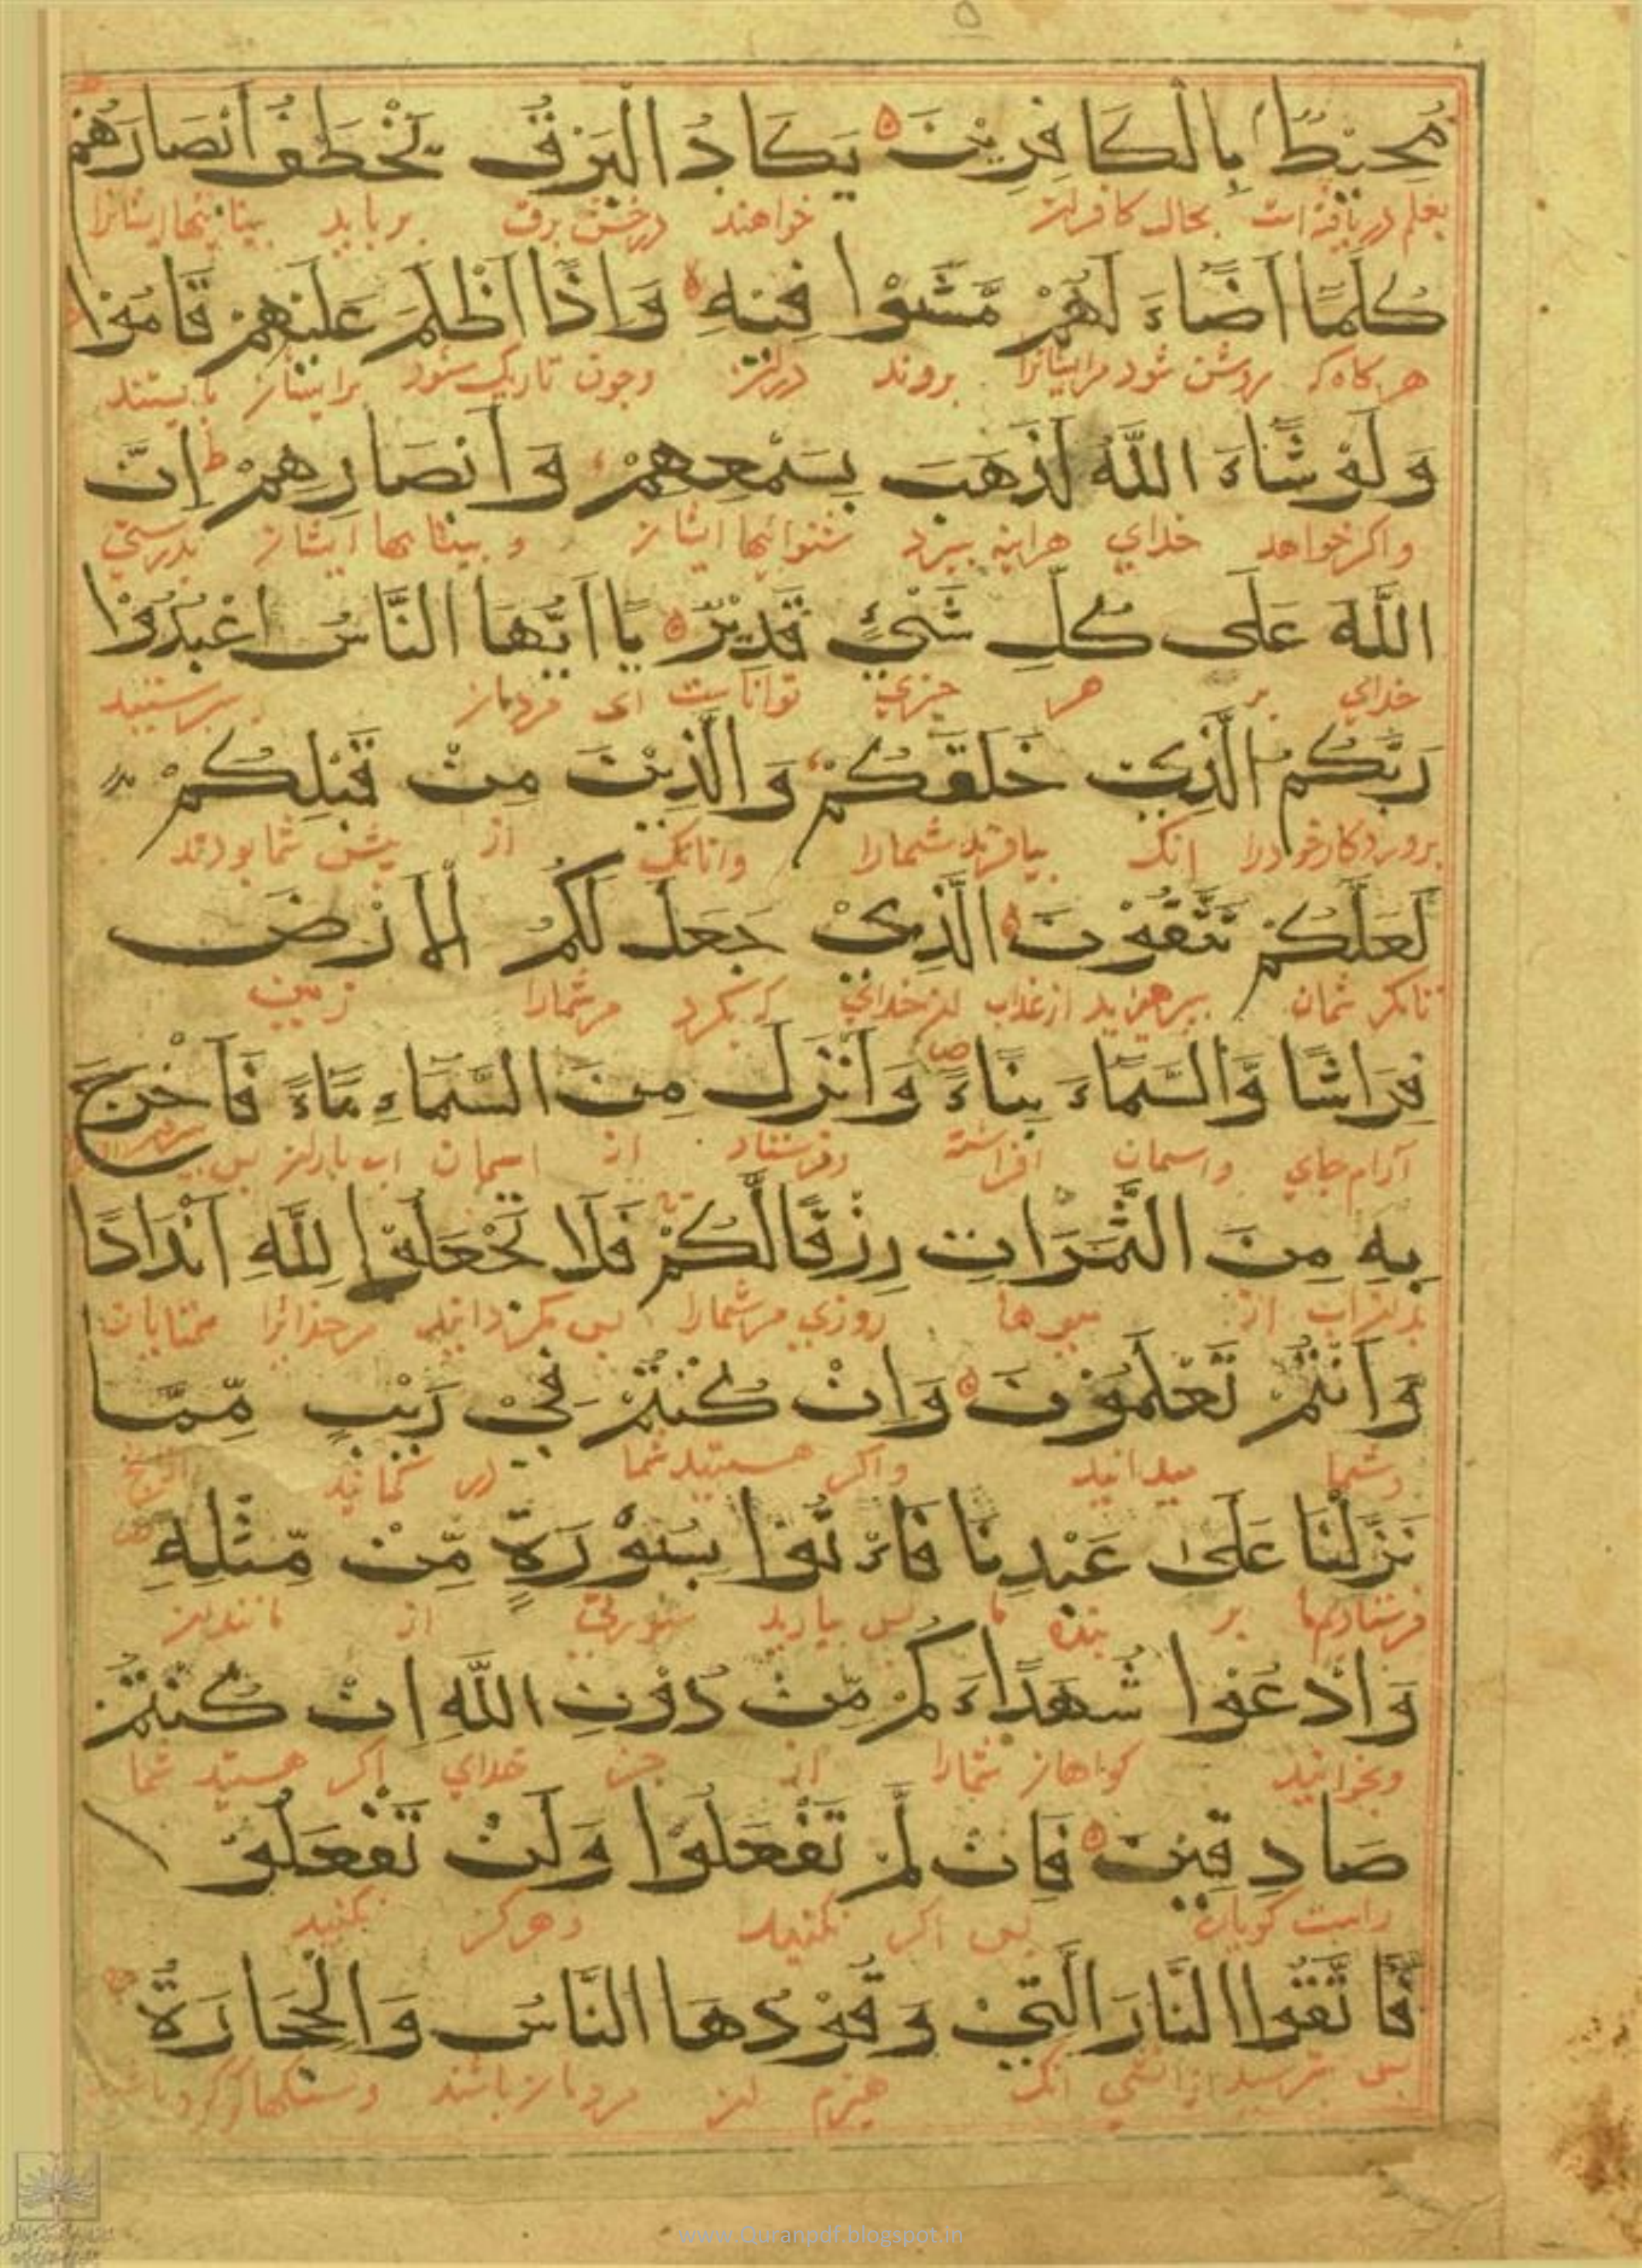 ۵
مُحِيْطٌ بِالْكَافِرِيْنَ يَكَادُ الْبَرْقُ يَخْطَفُ اَبْصَارَهُمْ
بعلم دریافته است بحال کافران خواهند درخش برق برباید بیناییها ایشانرا
كُلَّمَا اَضَاءَ لَهُمْ مَّشَوْا فِيْهِ وَاِذَا اَظْلَمَ عَلَيْهِمْ قَامُوْا
هر گاه که روشن شود مرایشانرا بروند دران وچون تاریک شود برایشان بایستند
وَلَوْ شَاءَ اللّٰهُ لَذَهَبَ بِسَمْعِهِمْ وَاَبْصَارِهِمْ ط اِنَّ
واکر خواهد خدای هراینه ببرد شنوائیها ایشان و بیناییها ایشان بدرستی
اللّٰهَ عَلَى كُلِّ شَيْئٍ قَدِيْرٌ يَا اَيُّهَا النَّاسُ اعْبُدُوْا
خدای بر هر چیزی تواناست ای مردمان بپرستید
رَبَّكُمُ الَّذِيْ خَلَقَكُمْ وَالَّذِيْنَ مِنْ قَبْلِكُمْ
پروردکار خودرا انک بیافرید شمارا وانانک از پیش شما بودند
لَعَلَّكُمْ تَتَّقُوْنَ الَّذِيْ جَعَلَ لَكُمُ الْاَرْضَ
تامکر شمان بپرهیزید از عذاب ان خدای که بکرد مرشمارا زمین
فِرَاشًا وَّالسَّمَاءَ بِنَاءً ص وَاَنْزَلَ مِنَ السَّمَاءِ مَاءً فَاَخْرَجَ
آرام جای واسمان افراشته وفرستاد از اسمان اب باران پس
بِهِ مِنَ الثَّمَرَاتِ رِزْقًا لَّكُمْ فَلَا تَجْعَلُوْا لِلّٰهِ اَنْدَادًا
بدان اب از میوها روزی مرشمارا پس مکردانید مرخدایرا همتایان
وَاَنْتُمْ تَعْلَمُوْنَ وَاِنْ كُنْتُمْ فِيْ رَيْبٍ مِّمَّا
وشما میدانید واکر هستید شما در کمانید
نَزَّلْنَا عَلٰى عَبْدِنَا فَاْتُوْا بِسُوْرَةٍ مِّنْ مِّثْلِهِ
فرستادیم ما بر بنده ما پس بیارید سورتی از مانند ان
وَادْعُوْا شُهَدَاءَكُمْ مِّنْ دُوْنِ اللّٰهِ اِنْ كُنْتُمْ
وبخوانید کواهان شمارا از جز خدای اکر هستید شما
صَادِقِيْنَ فَاِنْ لَّمْ تَفْعَلُوْا وَلَنْ تَفْعَلُوْ
راست کویان پس اکر نکنید وهرکز نکنید
فَاتَّقُوا النَّارَ الَّتِيْ وَقُوْدُهَا النَّاسُ وَالْحِجَارَةُ
پس بترسید از اتشی انک هیزم ان مردمان باشند وسنکها
www.Quranpdf.blogspot.in